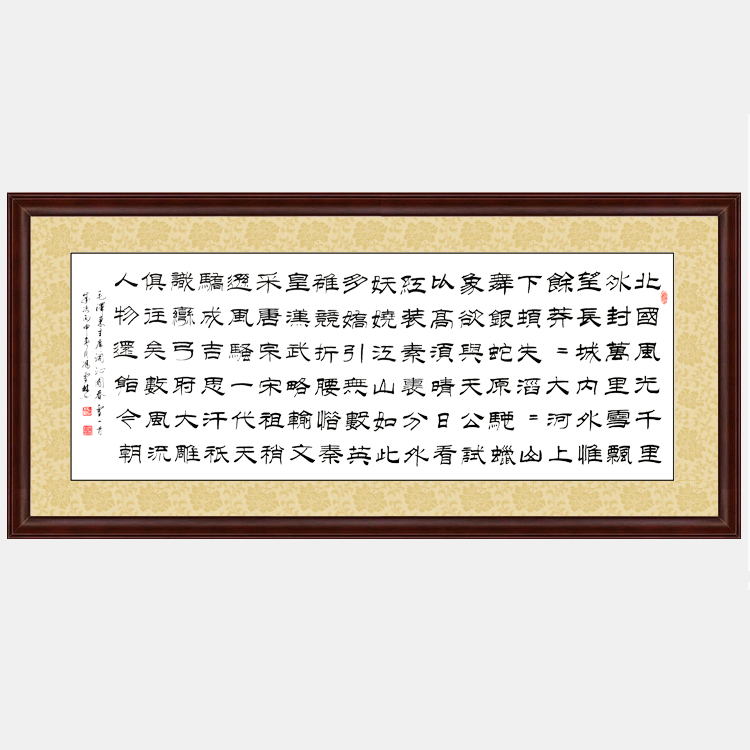 北國風光千里
冰封萬里雪飄
望長城內外惟
餘莽=大河上
下頓失滔=山
舞銀蛇原馳蠟
象欲與天公試
比高須晴日看
紅裝素裹分外
妖嬈江山如此
多嬌引無數英
雄競折腰惜秦
皇漢武略輸文
采唐宗宋祖稍
遜風騷一代天
驕成吉思汗祇
識彎弓射大雕
俱往矣數風流
人物還看今朝
毛澤東主席詞沁園春雪一首
丙申年